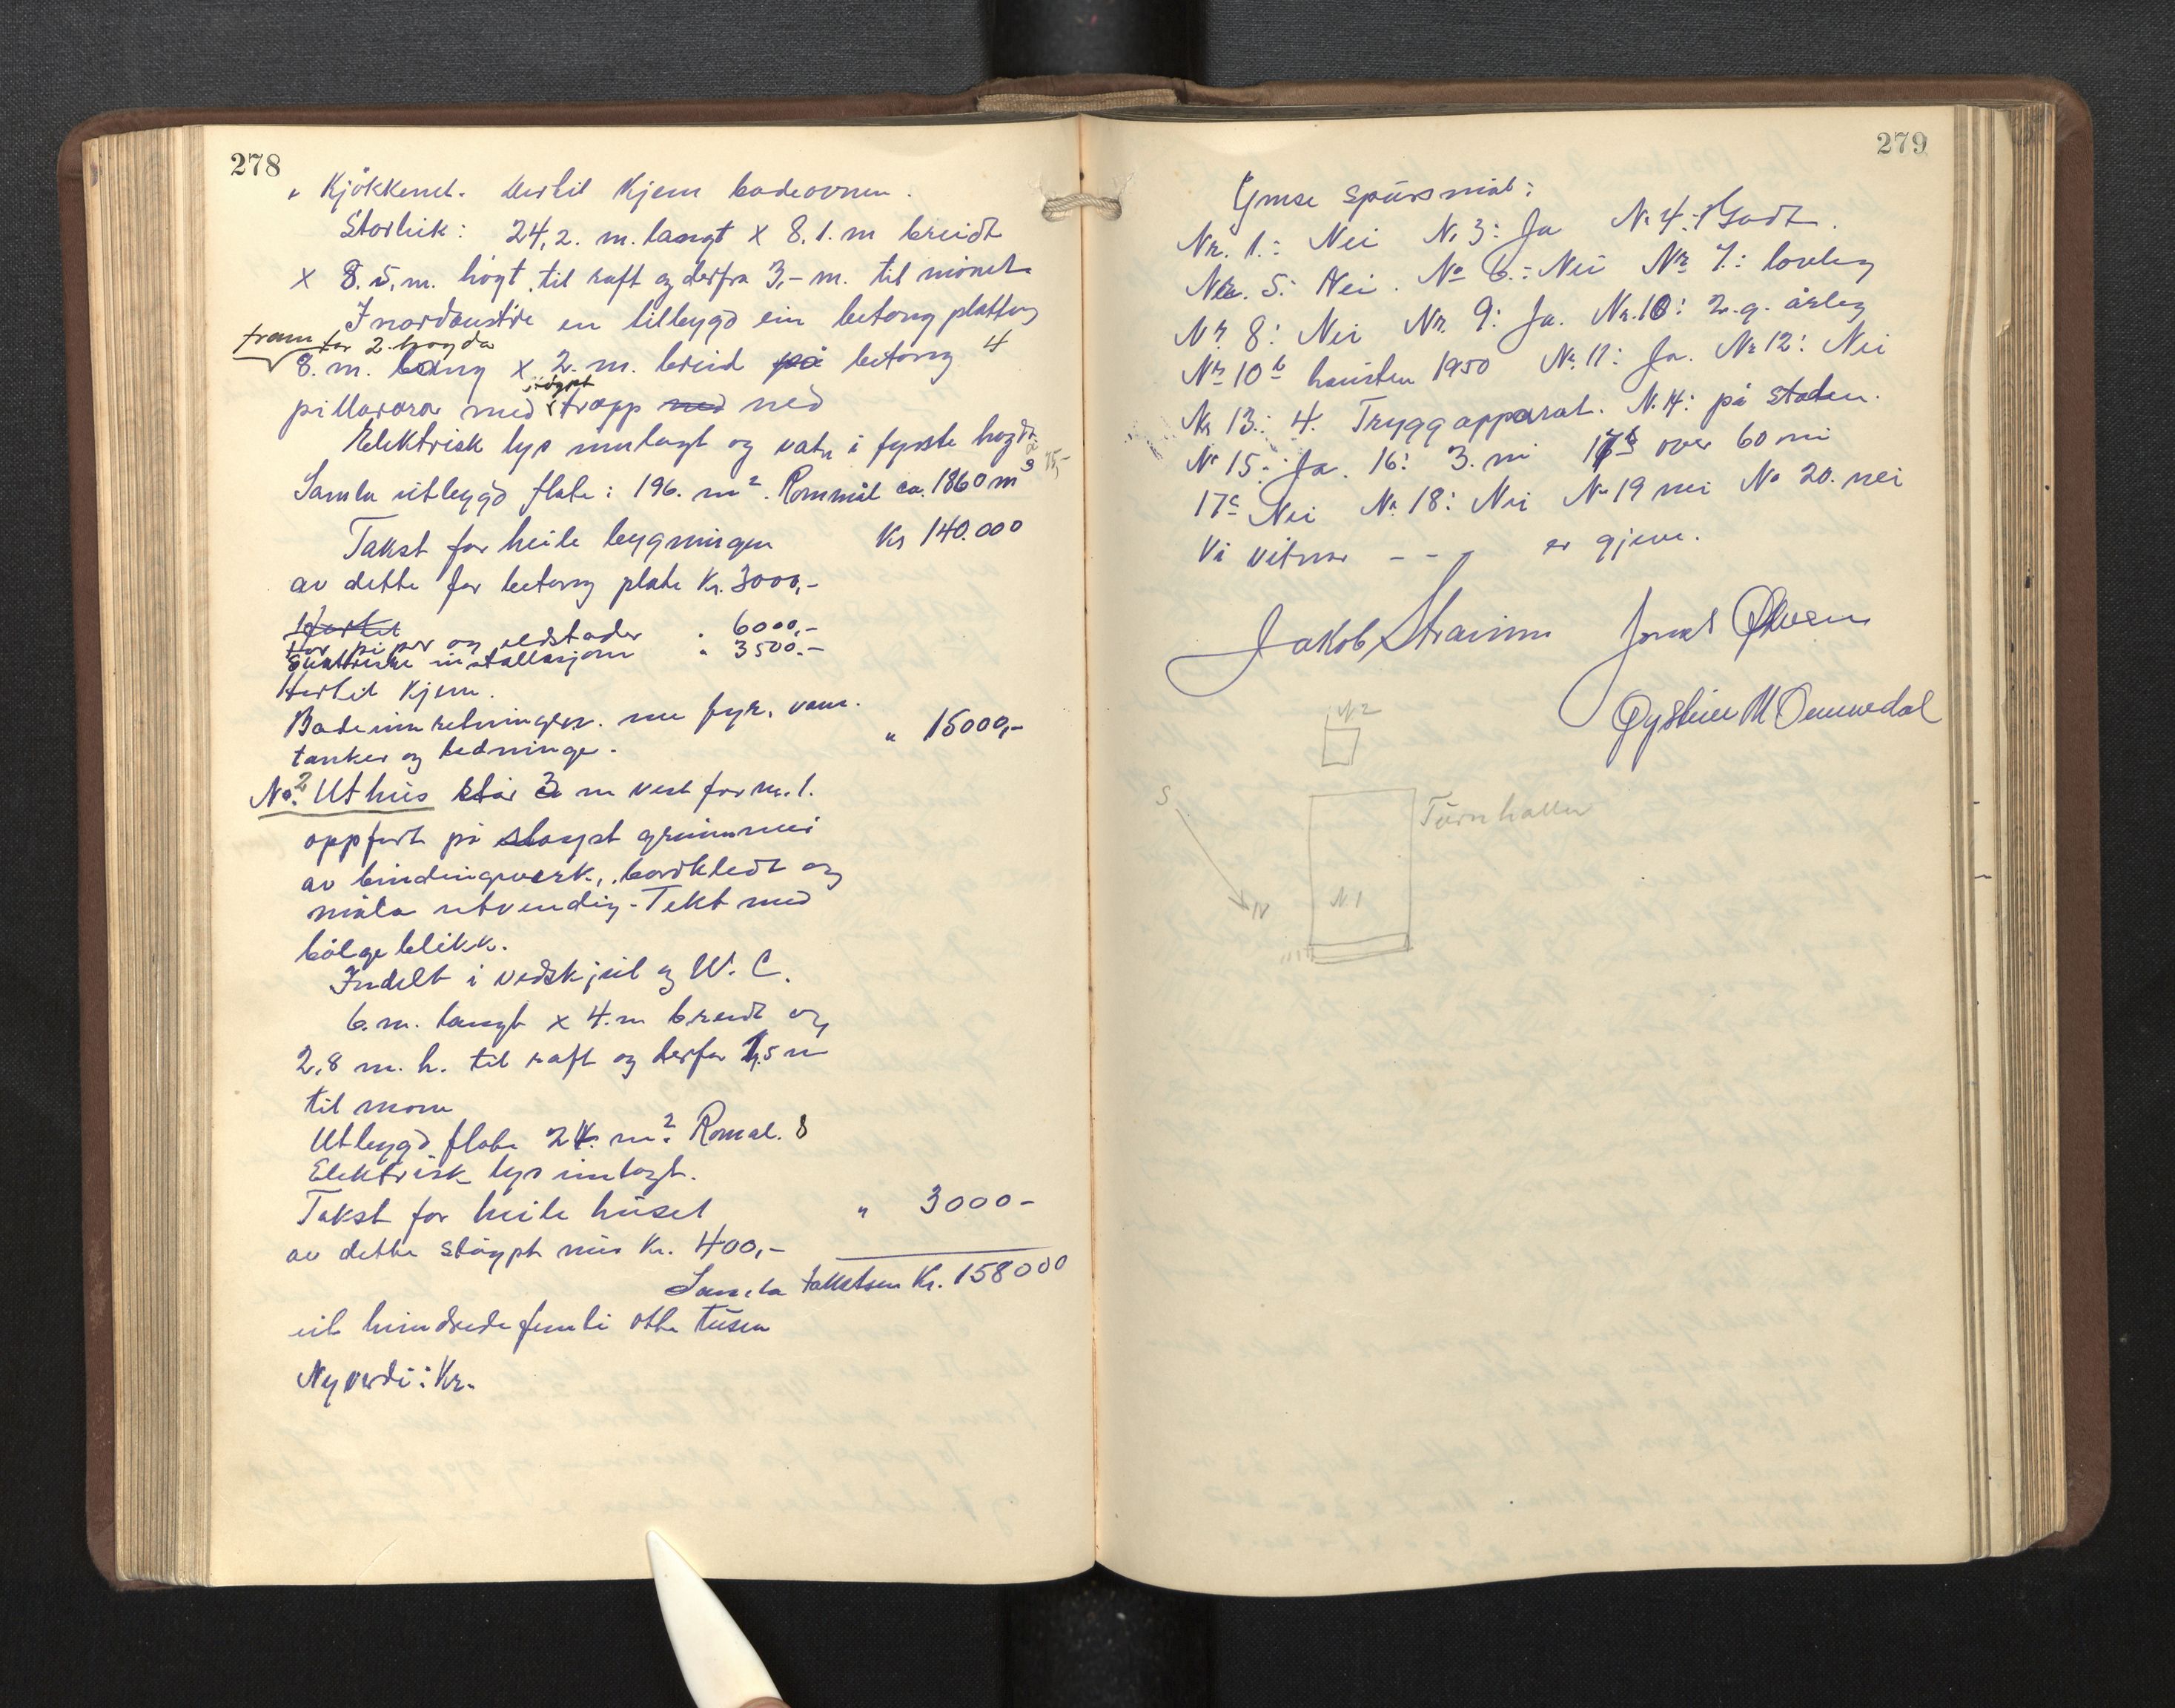 278
" Kjökkenet. Dertil Kjem badeovnen.
Storleik: 24,2. m. langt x 8.1. m breidt
x 8.5. m. högt til raft og derfra 3,- m. til mönet
I nordaustre en tilbygd ein betong plattng
fram for 2. högda
8. m. lang x 2. m. breid på betong 4
pillarar med støypt trapp ned ned
Elektrisk lys innlagt og vatn i fyrste högda
Samla utbygd flate: 196. m². Rommål ca. 1860 m³ 75,-
Takst for heile bygningen Kr 140.000
av dette for betong plate Kr. 3000,-
Hertil
For piper og eldstader " 6000,-
Elektriske installasjon " 3500.-
Hertil Kjem.
Badeinnretningen. mee fyr, vam.
tanker og ledninge. " 15000,-
No. 2 Uthus står 3 m vest for nr. 1.
oppført på støypt grunnmur
av bindingverk, bordkledt og
måla utvendig. Tekt med
bölgeblikk.
Indelt i vedskjul og W. C.
6. m. langt x 4. m breidt og
2,8 m. h. til raft og derfra 1,5 m
til mone
Utbygd flate 24. m². Romål. 8
Elektrisk lys innlagt.
Takst for heile huset " 3000-
av dette støypt mur Kr. 400,-
Samla takstsum Kr. 158000
eit hundrede femti otte tusen
Ny verdi: Kr.
279
Ymse spursmål:
Nr. 1.: Nei Nr 3: Ja Nr 4: Godt.
Nr. 5: Nei. Nr 6.: Nei Nr 7.: lovleg
Nr 8: Nei Nr. 9: Ja. Nr. 10: 2. g. årleg
Nr 10 b hausten 1950 Nr. 11: Ja. Nr 12: Nei
Nr 13: 4. Tryggapparat. Nr. 14: på staden.
Nr 15: Ja. 16: 3. m 17 b over 60 m
17 c Nei Nr. 18: Nei Nr 19 nei Nr 20. nei
Vi vitnar - - - er gjeve.
Jakob Straumn Jonas Økren
Øystein M Ommedal
N 2
S
Turnhallen
N 1
N